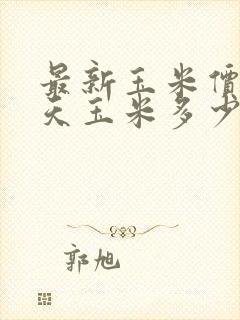 最新玉米價
天玉米多少
郭旭